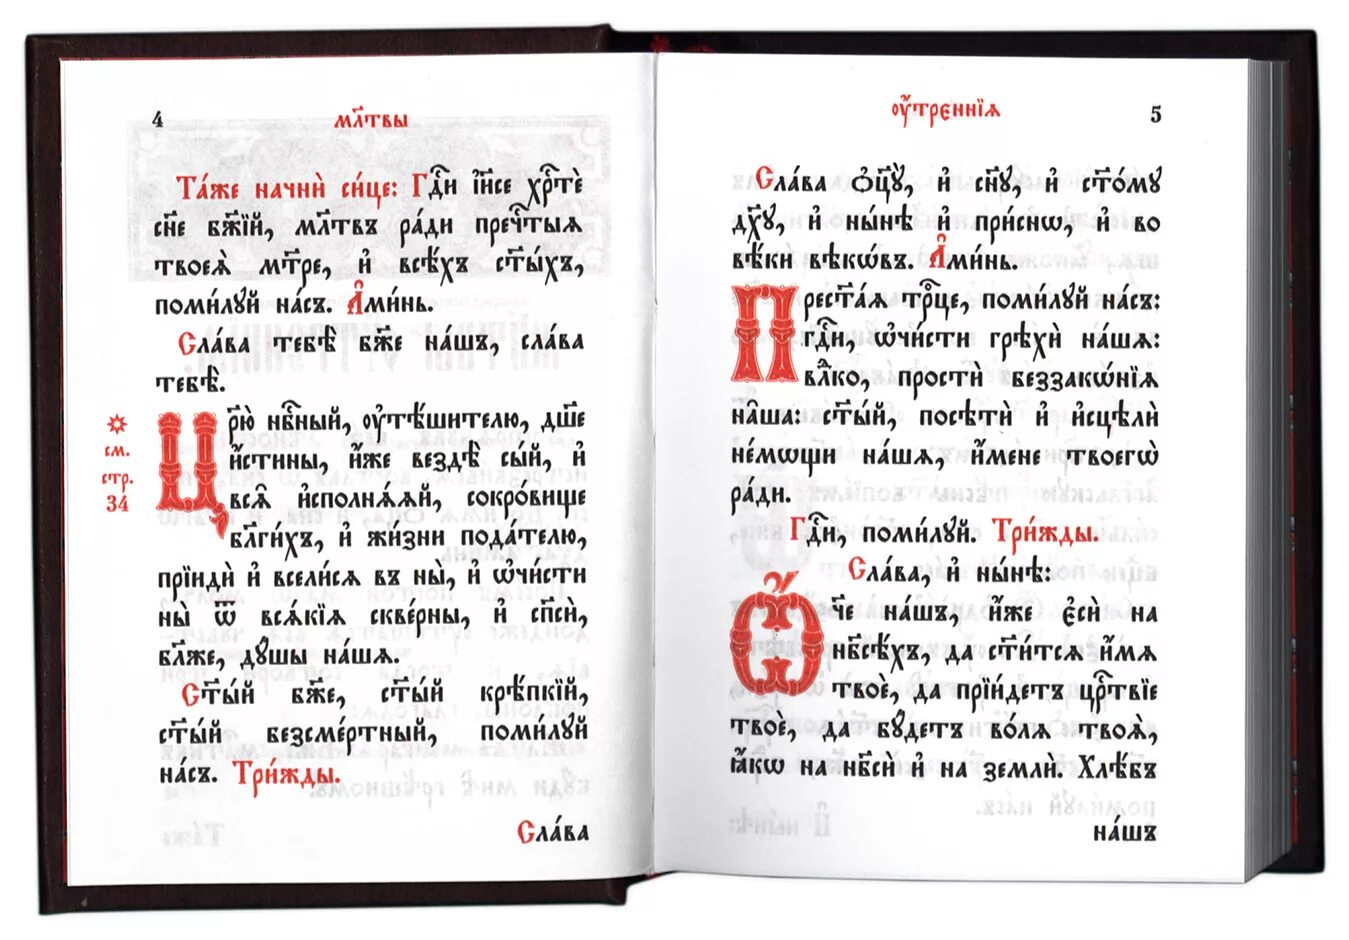 4
мл҃твы
Та́же начнѝ си́це: Гдⷭ҇и і҆и҃се хрⷭ҇тѐ
сн҃е бж҃їй, мл҃твъ ра́ди пречⷭ҇тыѧ
твоеѧ̀ мт҃ре, и҆ всѣ́хъ ст҃ы́хъ,
поми́лꙋй на́съ. А҆ми́нь.
Сла́ва тебѣ̀ бж҃е на́шъ, сла́ва
тебѣ̀.
см.
стр.
34
Цр҃ю̀ нбⷭ҇ный, оу҆тѣ́шителю, дш҃е
и҆́стины, и҆́же вездѣ̀ сы́й, и҆
всѧ̑ и҆сполнѧ́ѧй, сокро́вище
бл҃ги́хъ, и҆ жи́зни пода́телю,
прїидѝ и҆ всели́сѧ въ ны̀, и҆ ѡ҆чи́сти
ны̀ ѿ всѧ́кїѧ скве́рны, и҆ сп҃сѝ,
бл҃же, дꙋ́шы на́шѧ.
Ст҃ы́й бж҃е, ст҃ы́й крѣ́пкїй,
ст҃ы́й безсме́ртный, поми́лꙋй
на́съ. Три́жды.
Сла́ва
оу҆́тренниїѧ
5
Сла́ва ѻ҆ц҃ꙋ̀, и҆ сн҃ꙋ, и҆ ст҃о́мꙋ
дх҃ꙋ, и҆ ны́нѣ и҆ при́снѡ, и҆ во
вѣ́ки вѣкѡ́въ. А҆ми́нь.
Прест҃а́ѧ трⷪ҇це, поми́лꙋй на́съ:
гдⷭ҇и, ѡ҆чи́сти грѣхѝ на́шѧ:
влⷣко, простѝ беззакѡ́нїѧ
на̑ша: ст҃ы́й, посѣтѝ и҆ и҆сцѣлѝ
не́мѡщи на́шѧ, и҆́мене твоегѡ̀
ра́ди.
Гдⷭ҇и, поми́лꙋй. Три́жды.
Сла́ва, и҆ ны́нѣ:
Ѻ҆́че на́шъ, и҆́же є҆сѝ на
нбⷭ҇ѣ́хъ, да ст҃и́тсѧ и҆́мѧ
твоѐ, да прїи́детъ црⷭ҇твїе
твоѐ, да бꙋ́детъ во́лѧ твоѧ̀,
ꙗ҆́кѡ на нб҃сѝ и҆ на землѝ. Хлѣ́бъ
на́шъ